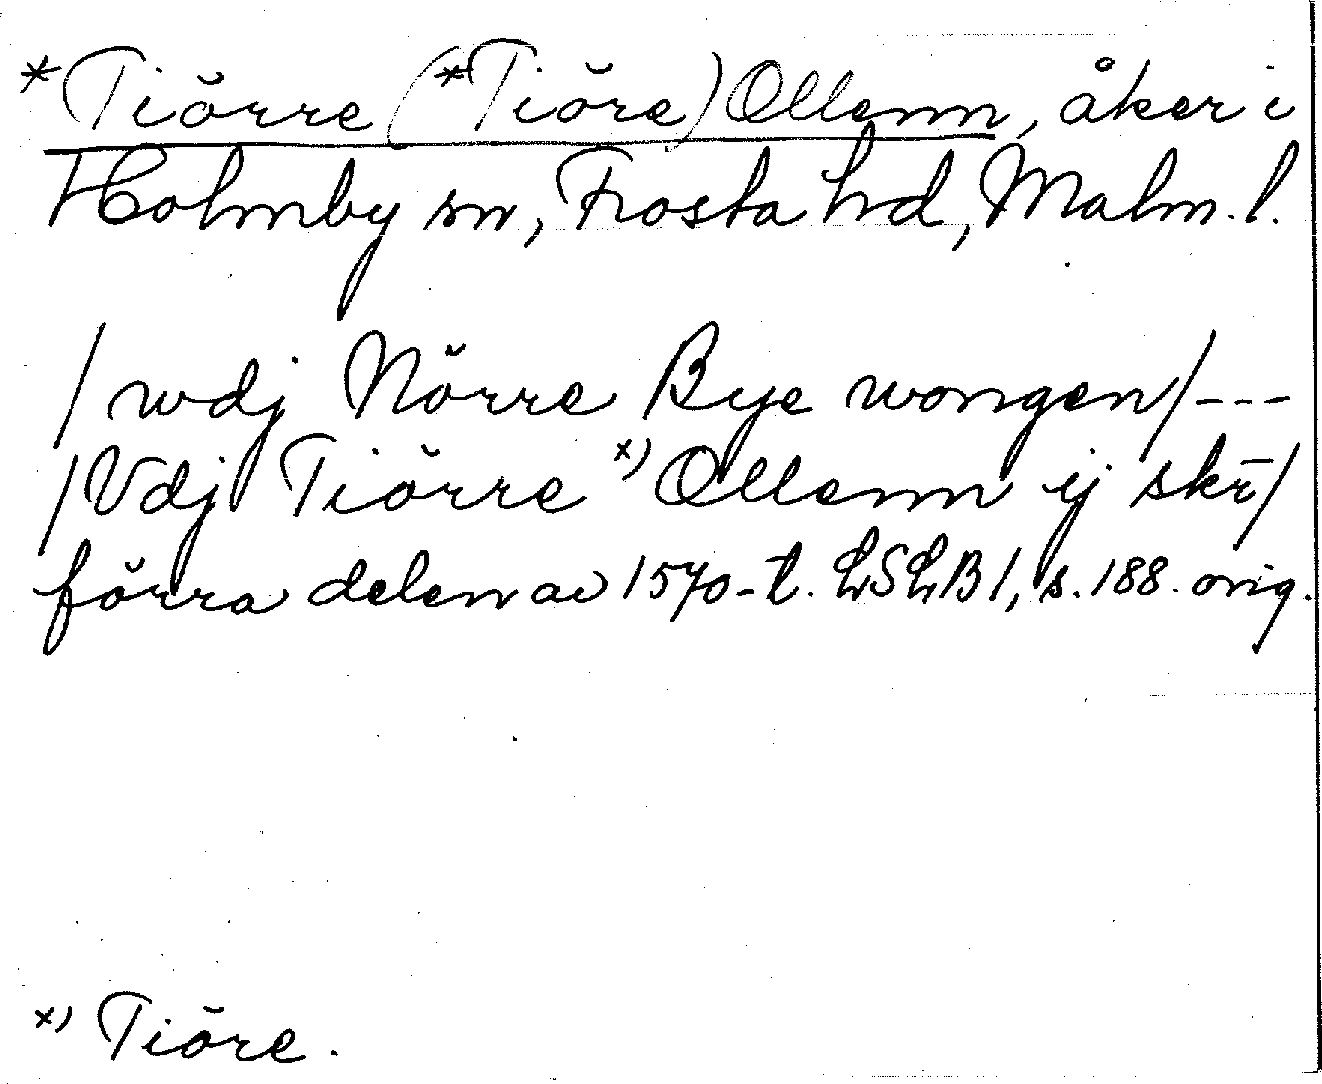 *Tiörre (*Tiöre) Ollenn, åker i
Holmby sn, Frosta hd, Malm. l.
/ wdj Nörre Bye wongen / ---
/ Vdj Tiörre x) Ollenn ij skr̄ /
förra delen av 1570-t. LSLB 1, s. 188. orig.
x) Tiöre.